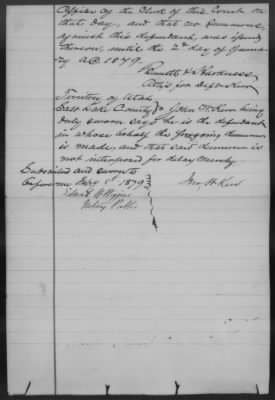 Office of the Clerk of this Court on
that day, and that no Summons
against this defendant, was issued
thereon, until the 2d day of Janua
ry A.D. 1879.
Bennett & Harkness
Att'ys for Deft Kerr
Territory of Utah
Salt Lake County } John W. Kerr being
duly sworn says he is the defendant
in whose behalf the foregoing demurrer
is made, and that said demurrer is
not interposed for delay merely.
Subscribed and sworn to
before me Feby 1st 1879
Jno. W. Kerr
Notary Public